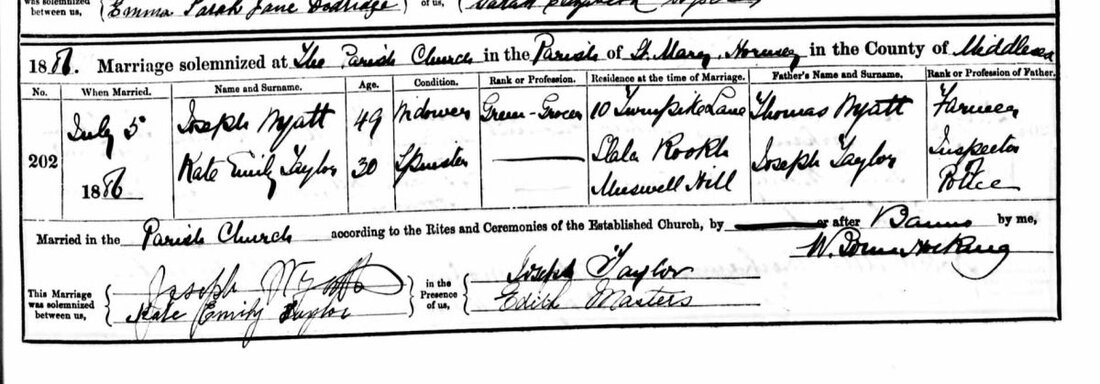 was solemnized between us, Emma Sarah Jane Dodridge of us, Sarah
1886. Marriage solemnized at The Parish Church in the Parish of St. Mary, Hornsey in the County of Middlesex
No. When Married. Name and Surname. Age. Condition. Rank or Profession. Residence at the time of Marriage. Father's Name and Surname. Rank or Profession of Father.
July 5 Joseph Wyatt 49 Widower Green-Grocer 10 Turnpike Lane Thomas Wyatt Farmer
202 1886 Kate Emily Taylor 30 Spinster Lalla Rookh Muswell Hill Joseph Taylor Inspector of Police
Married in the Parish Church according to the Rites and Ceremonies of the Established Church, by or after Banns by me,
W.
This Marriage was solemnized between us, Joseph Wyatt in the Presence of us, Joseph Taylor
Kate Emily Taylor Edith Masters